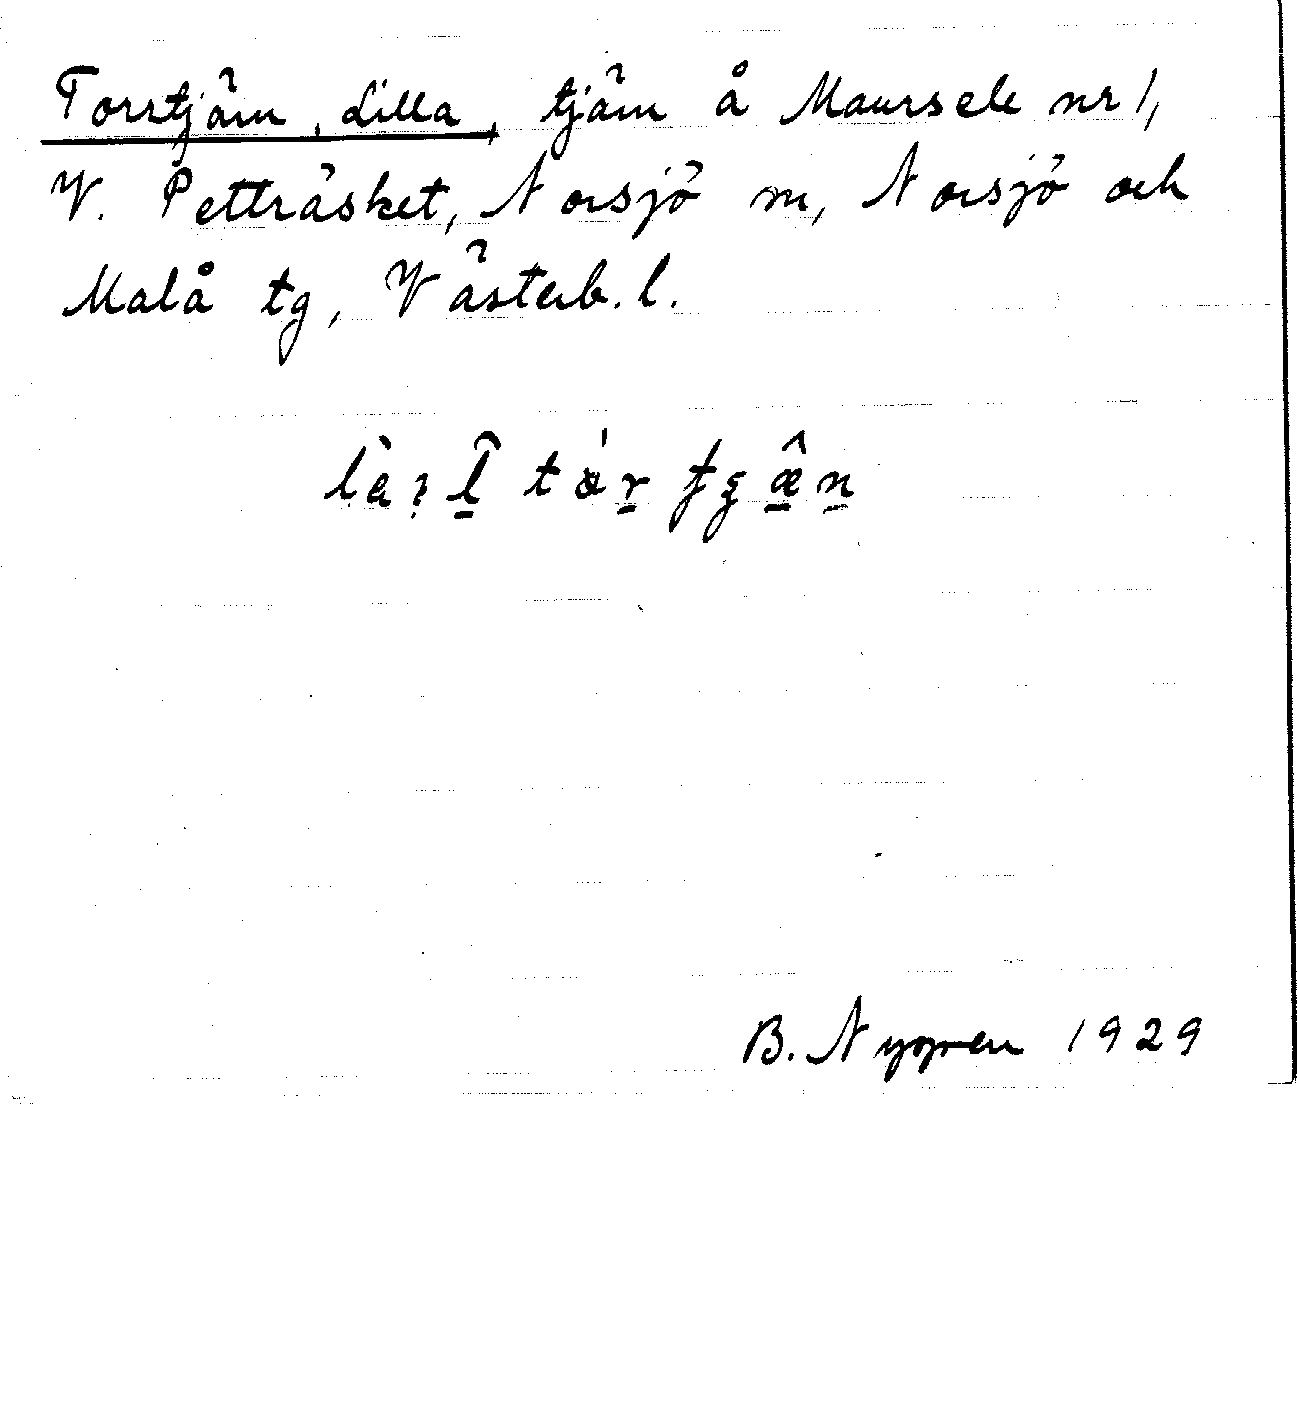 Torrtjärn, Lilla, tjärn å Maursele nr 1,
V. Petträsket, Norsjö sn, Norsjö och
Malå tg, Västerb. l.
B. Nygren 1929